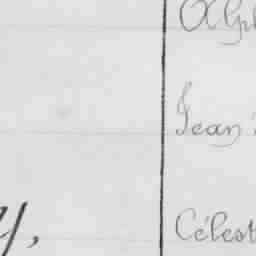 Alph
Jean
y, Célest